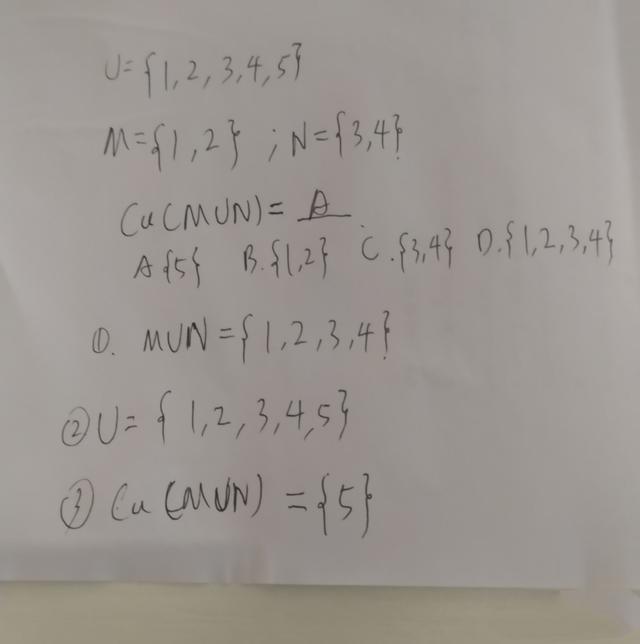 U={1,2,3,4,5}
M={1,2} ; N={3,4}
Cu(MUN)= A
A{5} B.{1,2} C.{3,4} D.{1,2,3,4}
①. MUN={1,2,3,4}
②U={1,2,3,4,5}
③ Cu(MUN)={5}